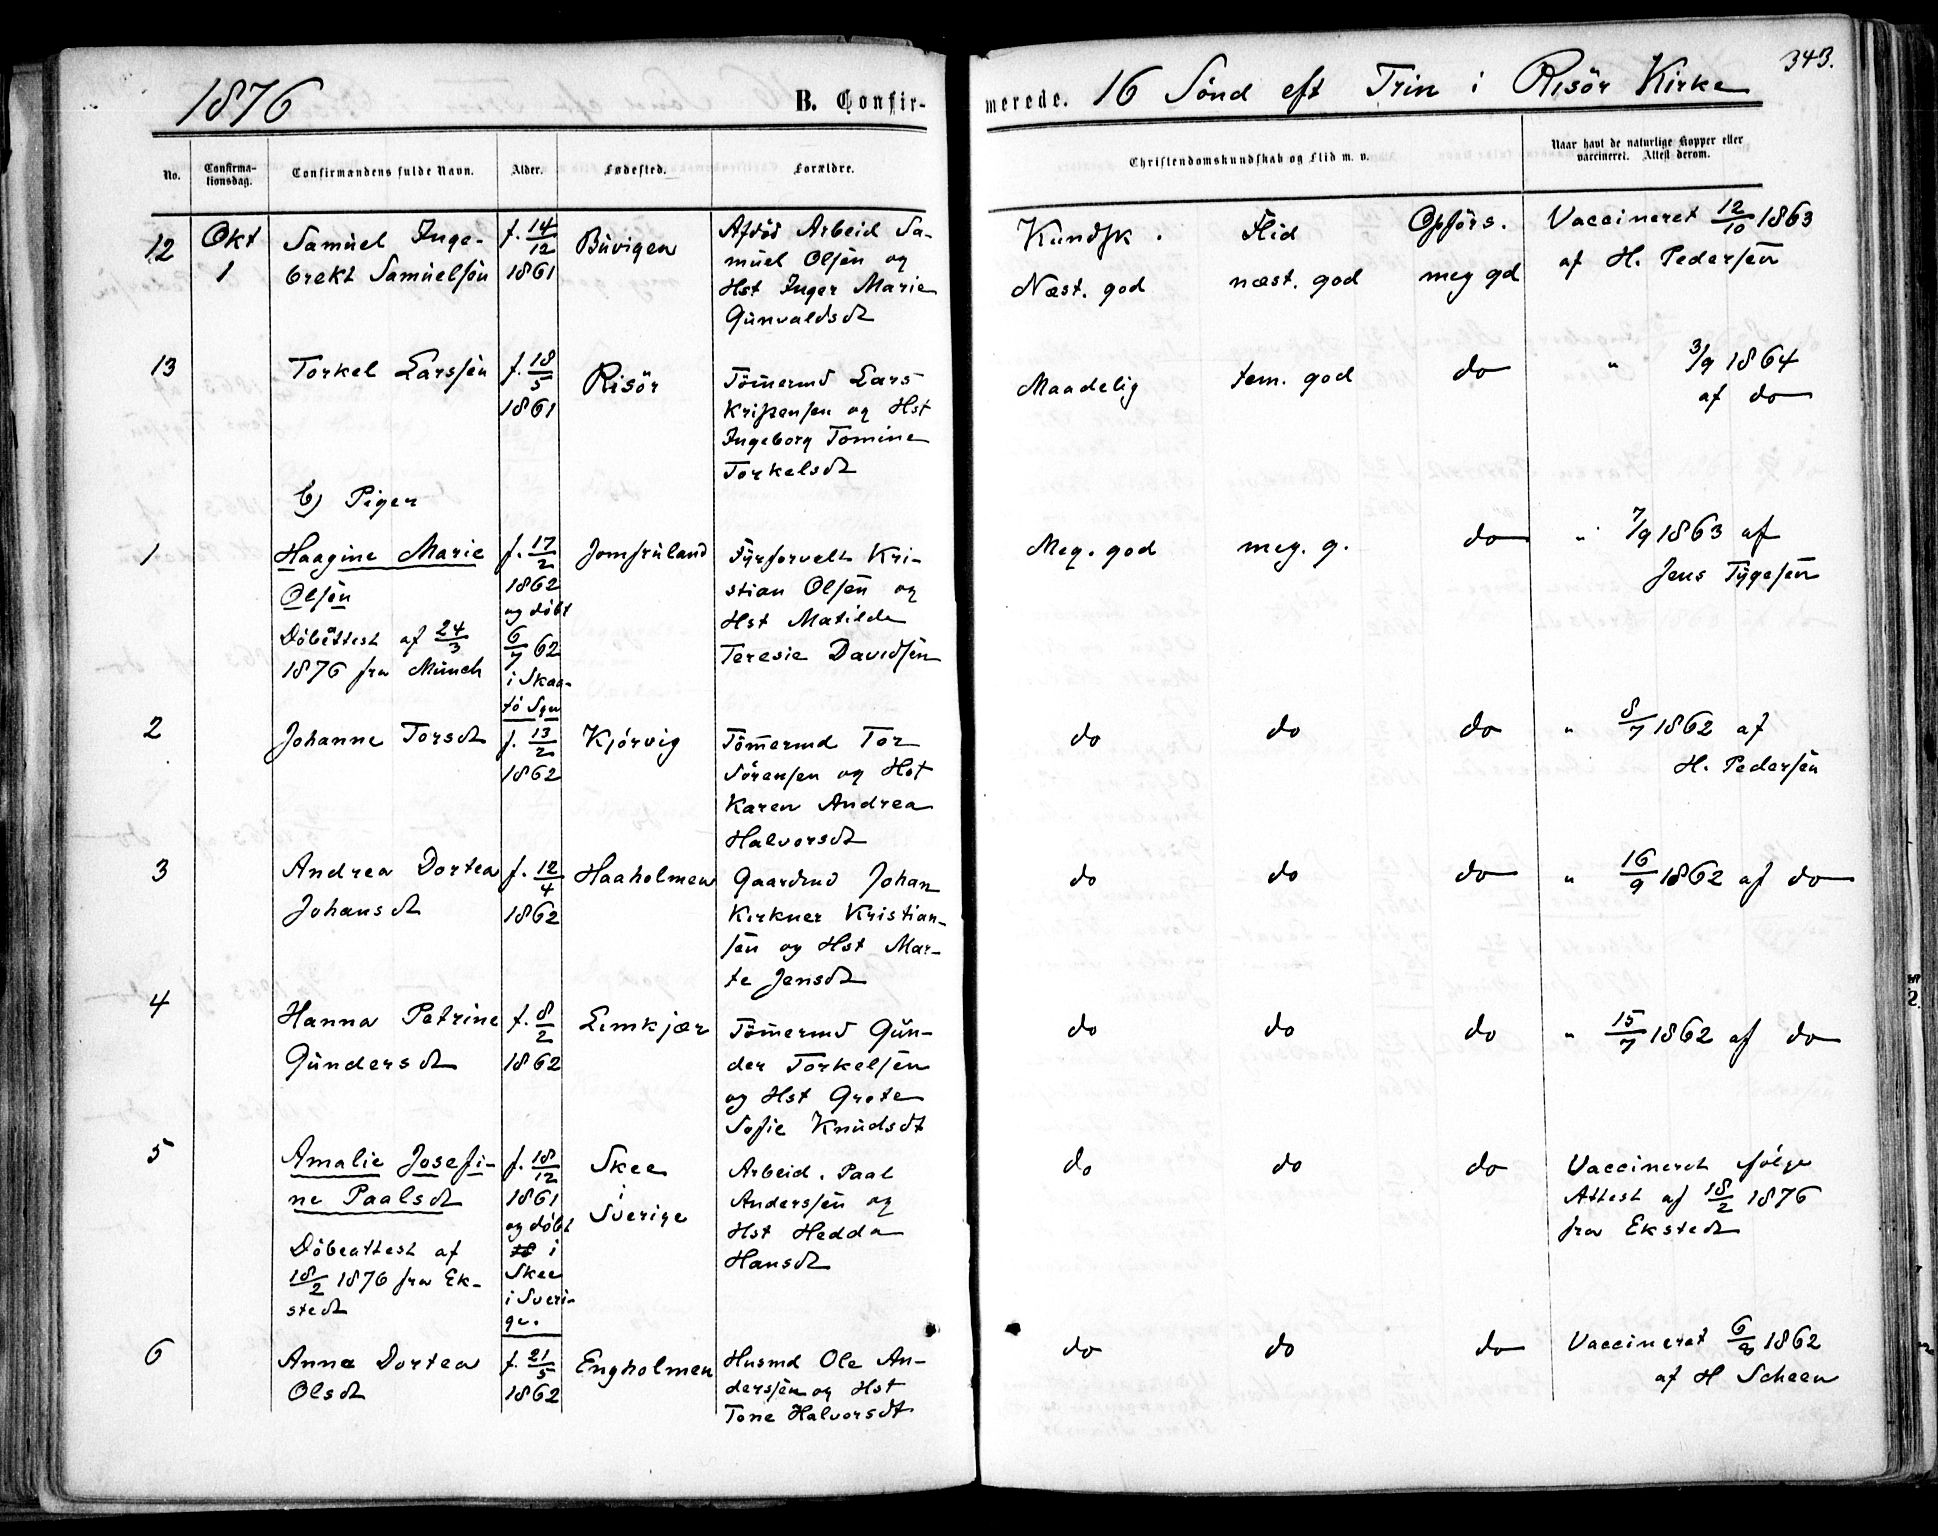 343.
1876 B. Confir-
merede. 16 Sönd eft Trin i Risör Kirke
No. Confirma-
tionsdag. Confirmandens fulde Navn. Alder. Fødested. Forældre.
Christendomskundskab og Flid m. v.
Naar havt de naturlige Kopper eller
vaccineret. Attest derom.
12 Okt
1
Samuel Inge-
brekt Samuelsen
f. 14/12
1861
Buvigen
Afdöd Arbeid Sa-
muel Olsen og
Hst Inger Marie
Gunvaldsdt
Kundsk. Flid Opförs.
Næst. god næst. god meg gd
Vaccineret 12/10 1863
af H. Pedersen
13
Torkel Larssen
f. 18/5
1861
Risör
Tömermd Lars
Kristensen og Hst
Ingeborg Tomine
Torkelsdt
Maadelig tem. god do
" 3/9 1864
af do
b) Piger
1
Haagine Marie
Olsen
Döbeattest af 24/3
1876 fra Munch
f. 17/2
1862
og döbt
6/7 62
i Skaa-
tö Sgn
Jomfruland
Fyrforvalt Kri-
stian Olsen og
Hst Matilde
Teresie Davidsen
Meg. god meg. g. do
" 7/9 1863 af
Jens Tygesen
2
Johanne Torsdt
f. 13/2
1862
Kjörvig
Tömermd Tor
Sörensen og Hst
Karen Andrea
Halvorsdt
do do do
" 8/7 1862 af
H. Pedersen
3
Andrea Dortea
Johansdt
f. 12/4
1862
Haaholmen
Gaardmd Johan
Kirkner Kristian-
sen og Hst Mar-
te Jensdt
do do do
" 16/9 1862 af do
4
Hanna Petrine
Gundersdt
f. 8/2
1862
Lemkjær
Tömermd Gun-
der Torkelsen
og Hst Grete
Sofie Knudsdt
do do do
" 15/7 1862 af do
5
Amalie Josefi-
ne Paalsdt
Döbeattest af
18/2 1876 fra Ek-
stedt
f. 18/12
1861
og döbt
i
Skee
i Sveri-
ge.
Skee
i
Sverige
Arbeid. Paal
Anderssen og
Hst Hedda
Hansdt
do do do
Vaccineret ifölge
Attest af 18/2 1876
fra Ekstedt
6
Anne Dortea
Olsdt
f. 21/5
1862
Engholmen
Husmd Ole An-
derssen og Hst
Tone Halvorsdt
do do do
Vaccineret 6/8 1862
af H Scheen